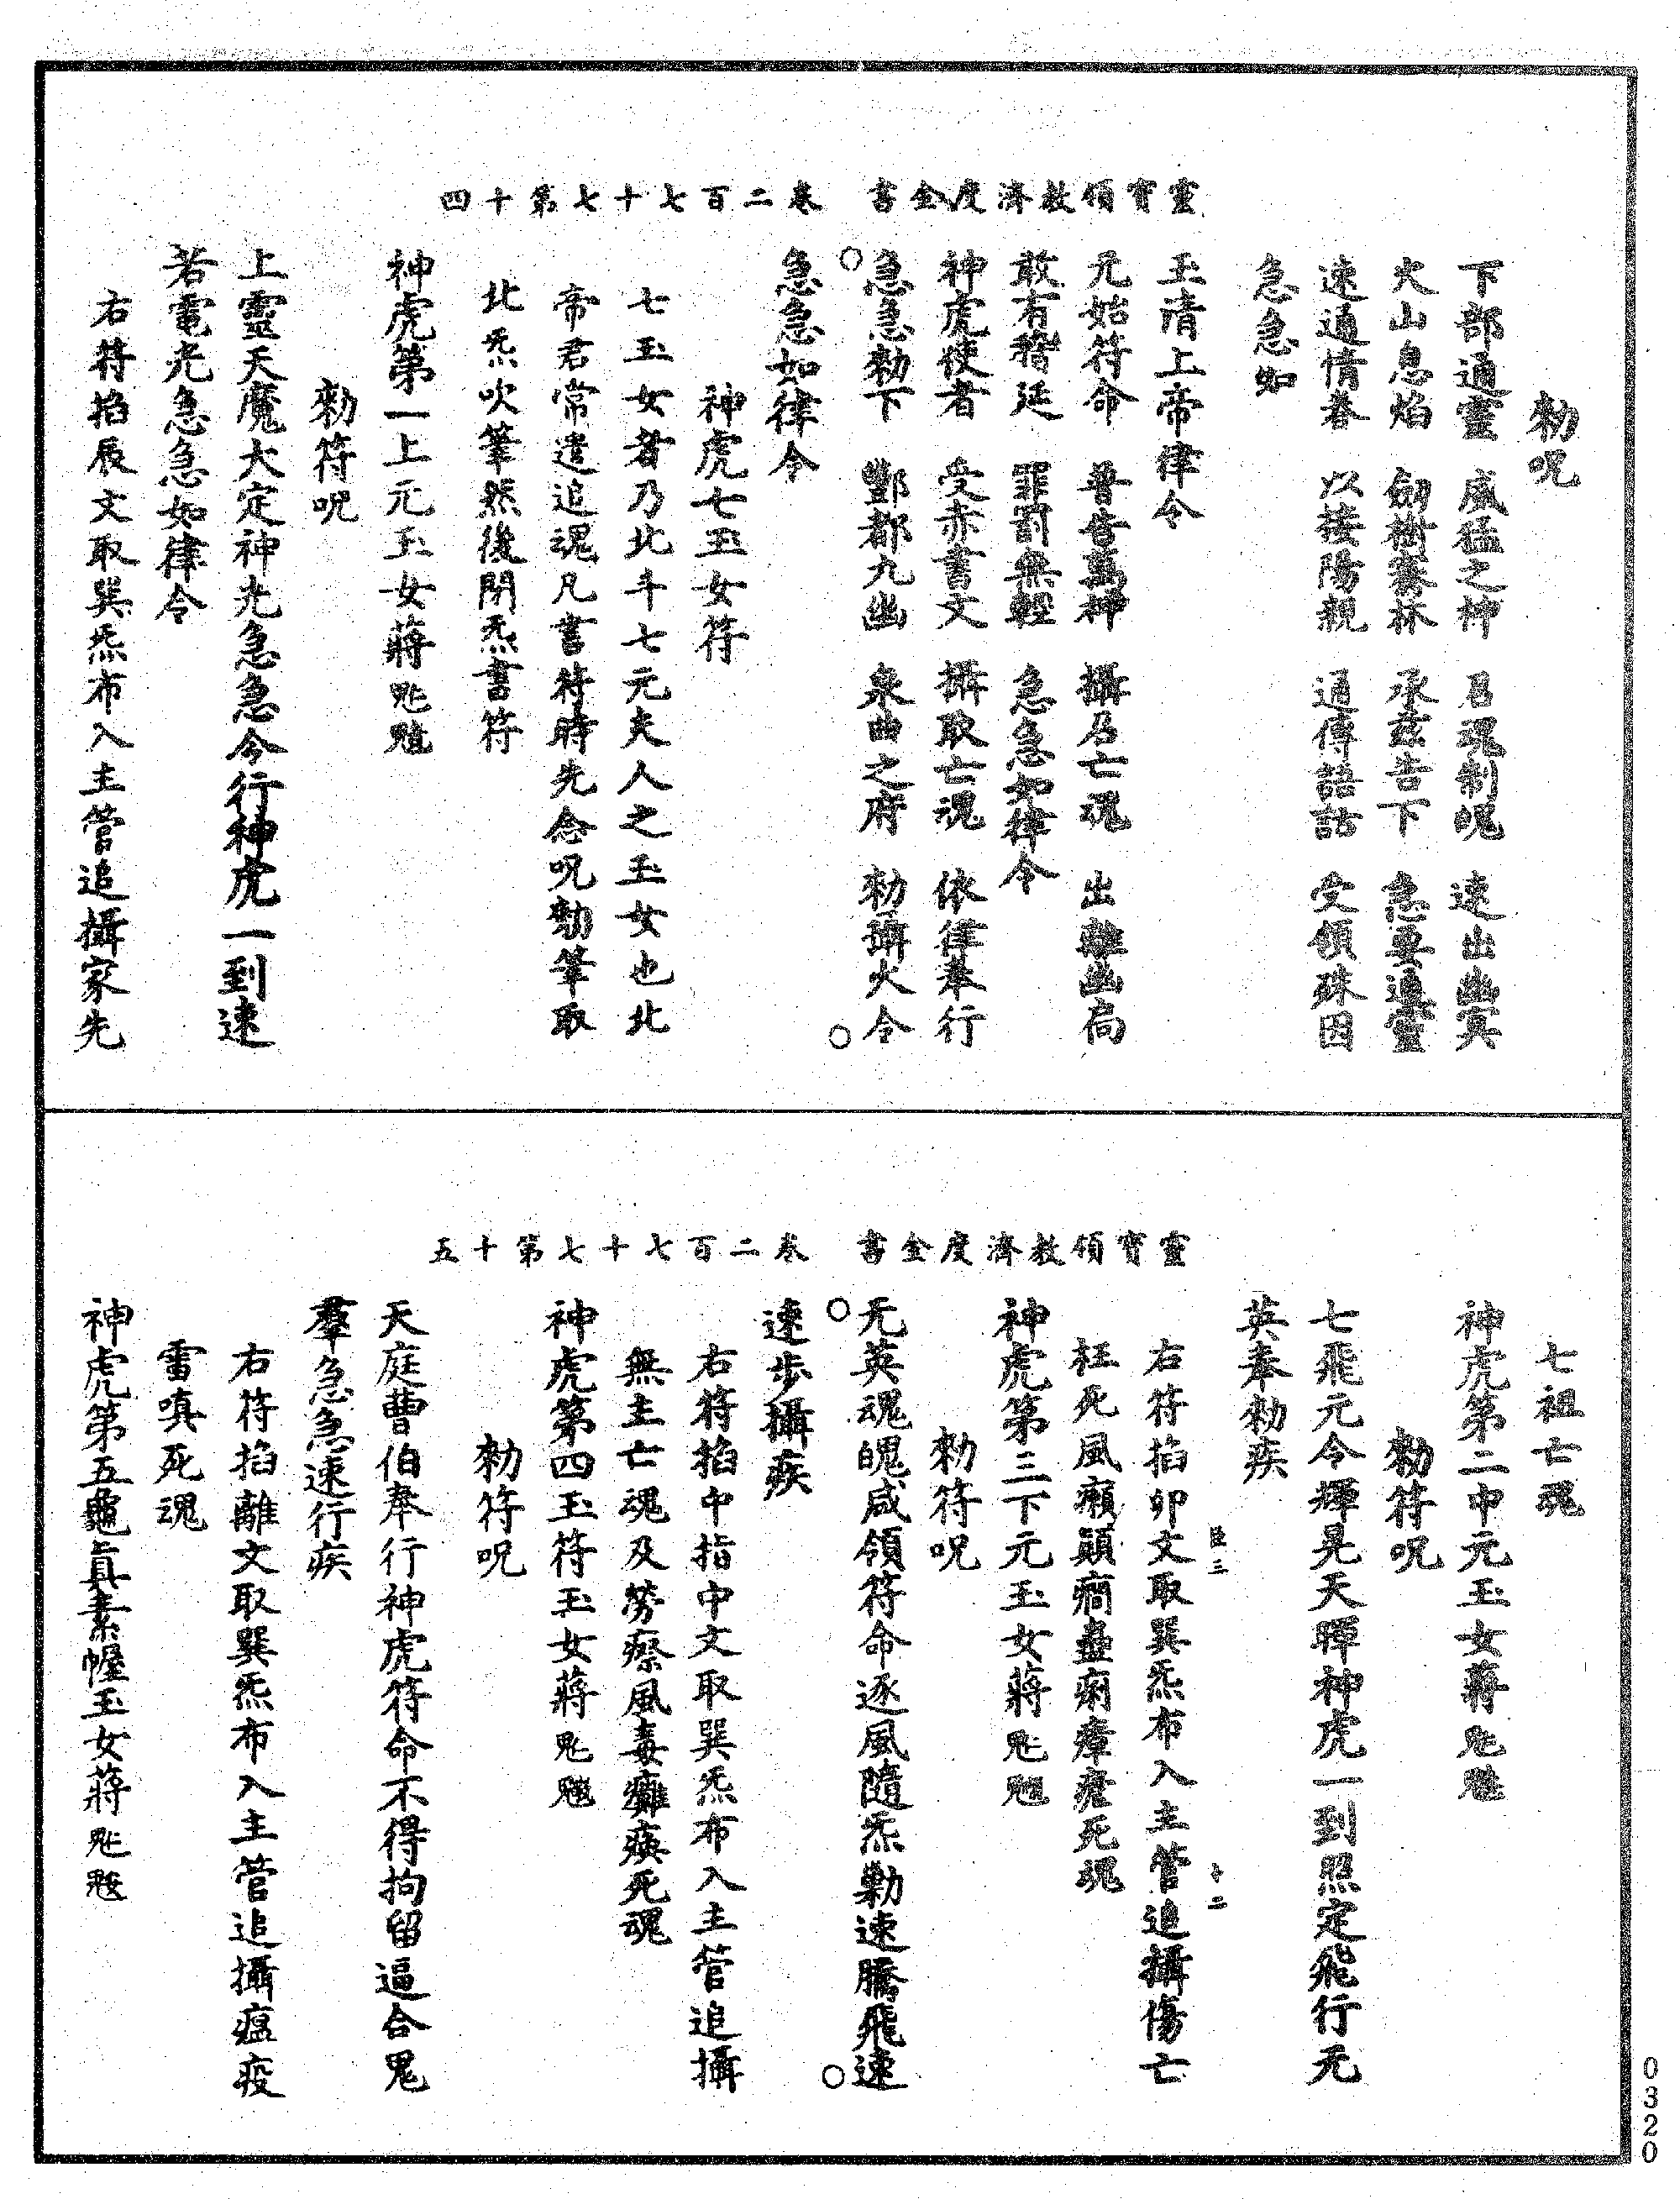 靈寶領教濟度金書　卷二百七十七第十四
勑呪
下部通靈　威猛之神　召魂制魄　速出幽冥
火山息焰　劒樹寨林　承兹告下　急要通靈
速通情眷　以接陽親　通傳語話　受領殊因
急急如
玉清上帝律令
元始符命　普告萬神　攝召亡魂　出離幽局
敢有稽延　罪罰無輕　急急如律令
神虎使者　受赤書文　攝取亡魂　依律奉行
急急勑下　酆都九幽　泉曲之府　勑攝火令
急急如律令
神虎七玉女符
七玉女者乃北斗七元夫人之玉女也北
帝君常遣追魂凡書符時先念呪勑筆取
北炁吹筆然後閉炁書符
神虎第一上元玉女蔣
勑符呪
上靈天魔大定神光急急令行神虎一到速
若電光急急如律令
右符掐辰文取巽炁布入主管追攝家先
靈寶領教濟度金書　卷二百七十七第十五
七祖亡魂
神虎第二中元玉女蔣
勑符呪
七飛元令輝晃天暉神虎一到照定飛行元
英奉勑疾
右符掐卯文取巽炁布入主管追攝傷亡
枉死風癲顛癇蠱痢瘴瘧死魂
神虎第三下元玉女蔣
勑符呪
元英魂魄咸領符命逐風隨炁勦速騰飛速
速步攝疾
右符掐中指中文取巽炁布入主管追攝
無主亡魂及勞瘵風毒癱瘓死魂
神虎第四玉符玉女蔣
勑符呪
天庭曹伯奉行神虎符命不得拘留逼合鬼
羣急急速行疾
右符掐離文取巽炁布入主管追攝瘟疫
雷嗔死魂
神虎第五龜真素幄玉女蔣
十二
0320